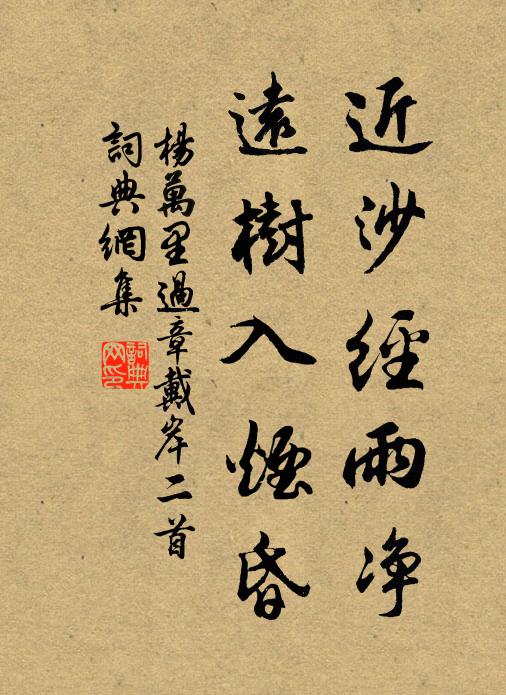 近沙經雨净
遠樹入煙昏
楊萬里過章戴岸二首
詞典網集
詞典网印